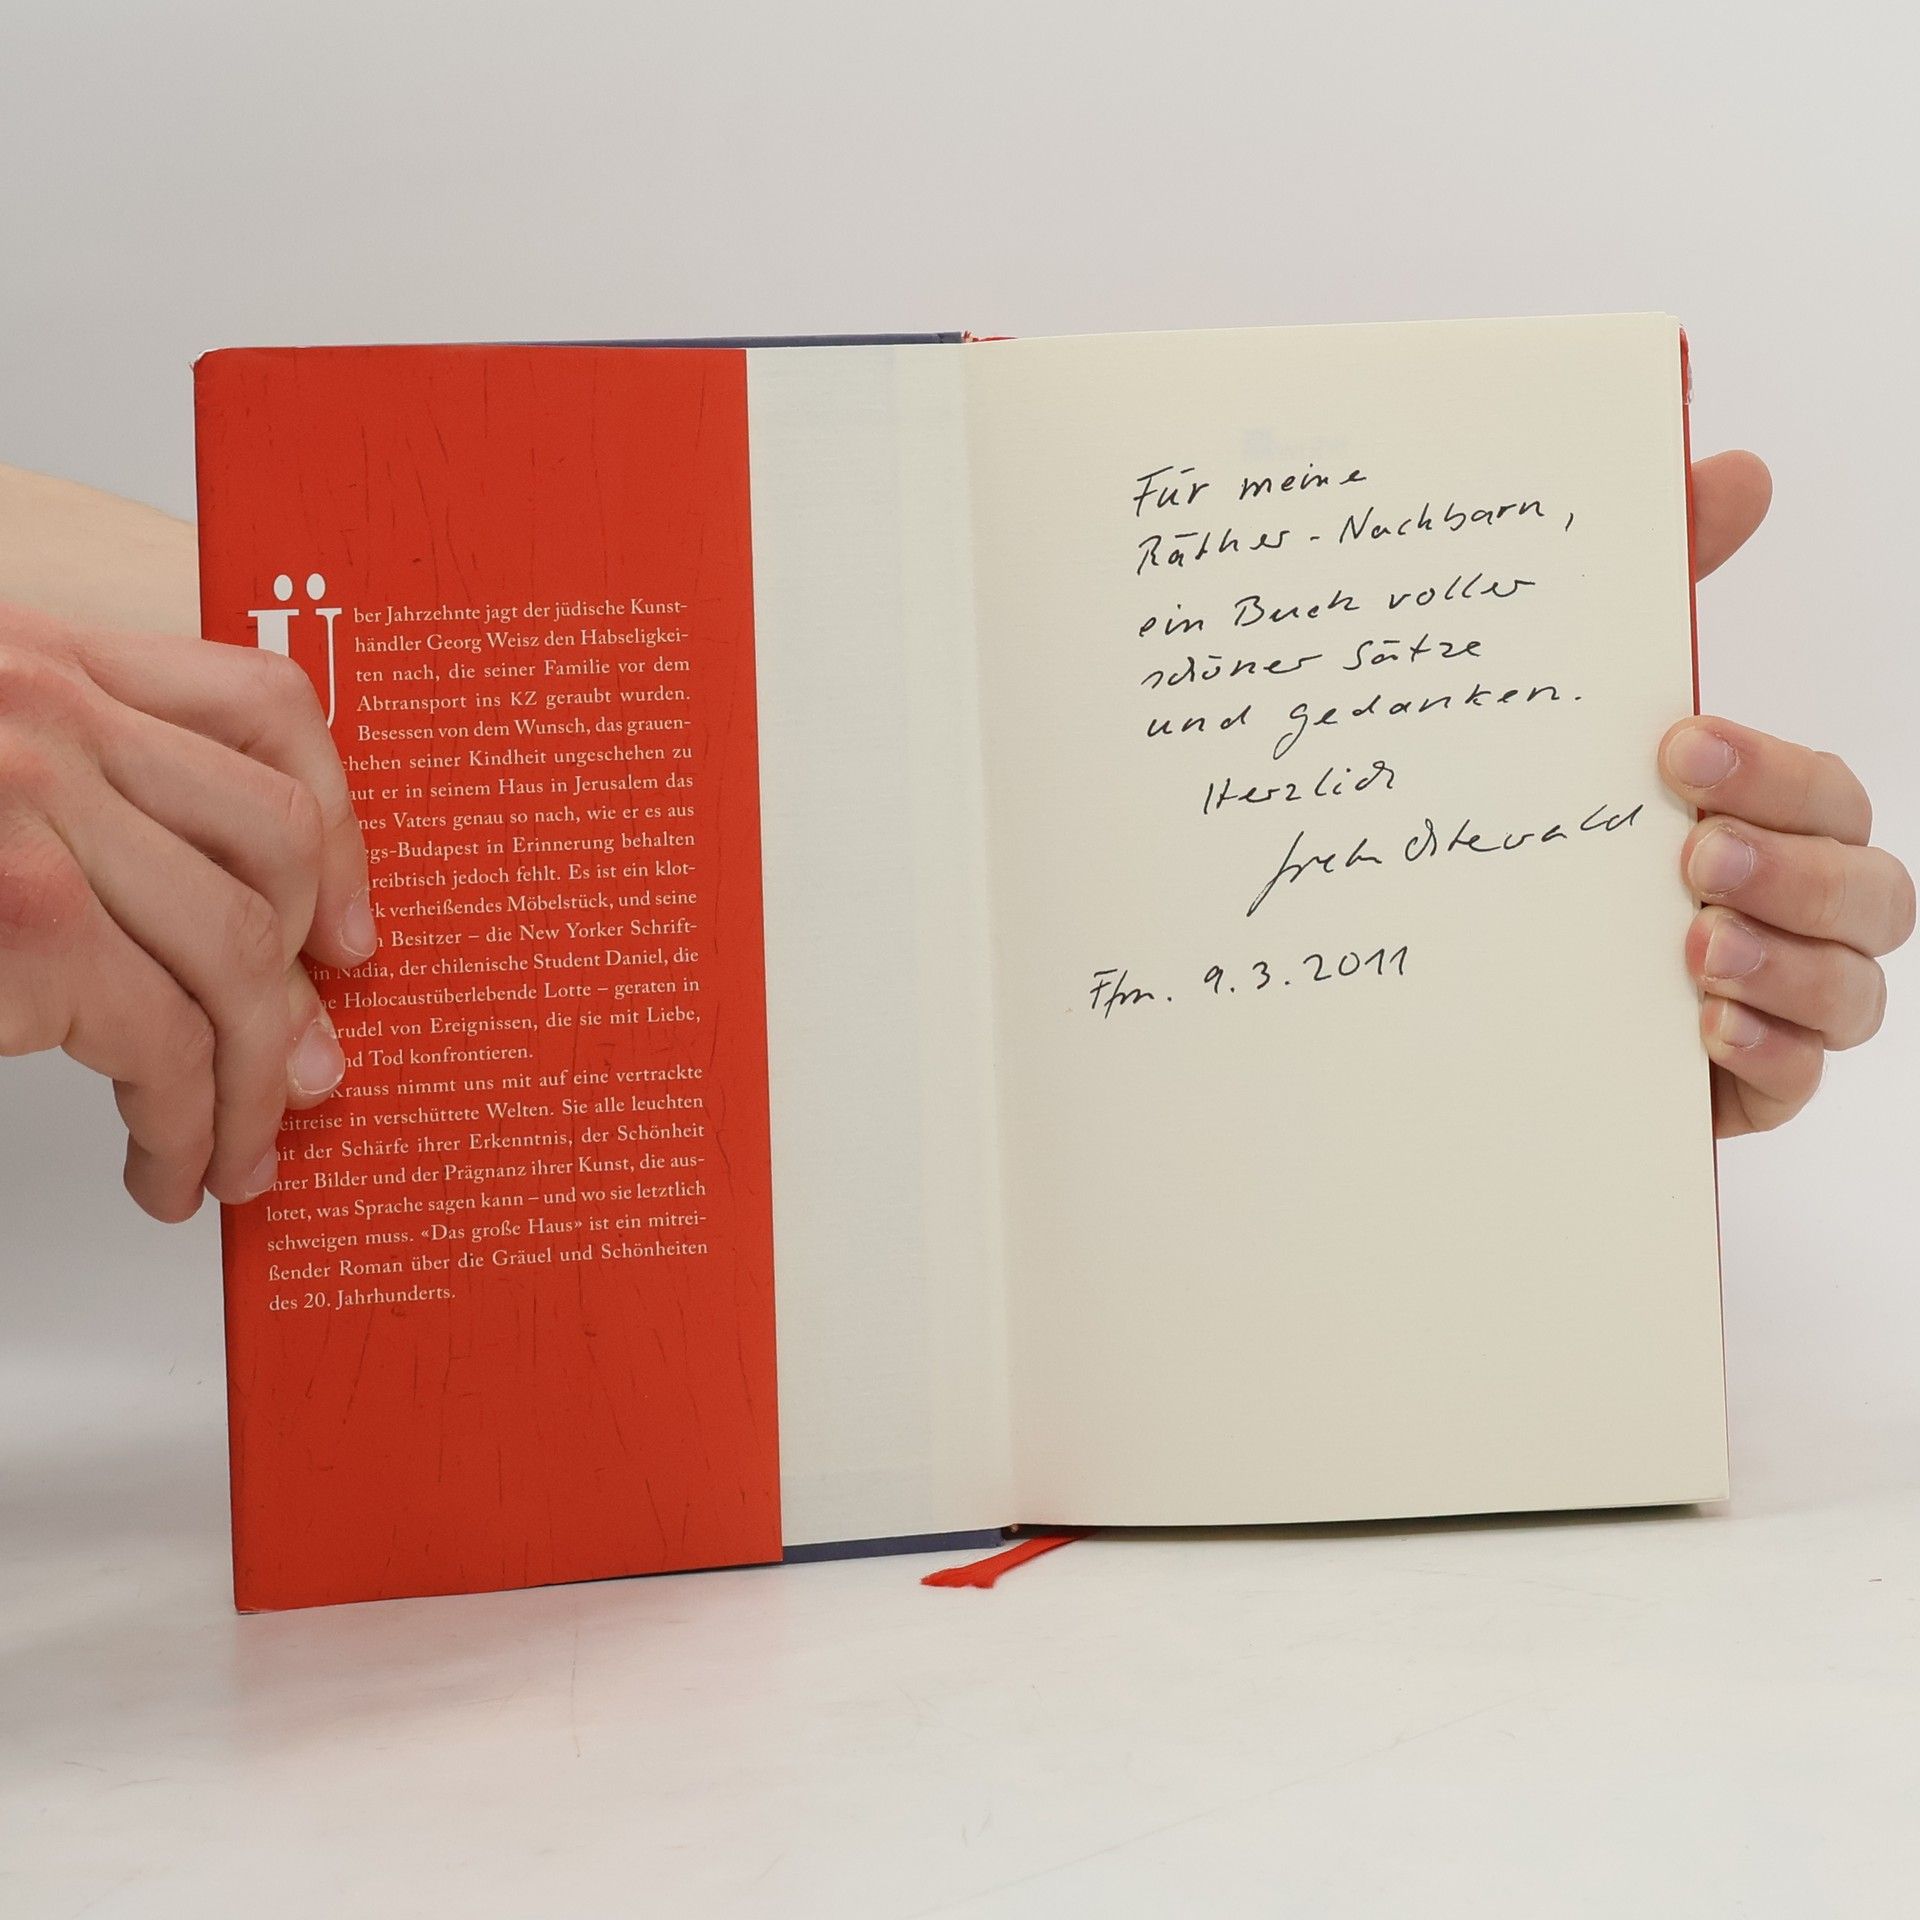 Über Jahrzehnte jagt der jüdische Kunst-
händler Georg Weisz den Habseligkei-
ten nach, die seiner Familie vor dem
Abtransport ins KZ geraubt wurden.
Besessen von dem Wunsch, das grauen-
chehen seiner Kindheit ungeschehen zu
aut er in seinem Haus in Jerusalem das
nes Vaters genau so nach, wie er es aus
egs-Budapest in Erinnerung behalten
reibtisch jedoch fehlt. Es ist ein klot-
k verheißendes Möbelstück, und seine
n Besitzer – die New Yorker Schrift-
in Nadia, der chilenische Student Daniel, die
he Holocaustüberlebende Lotte – geraten in
rudel von Ereignissen, die sie mit Liebe,
nd Tod konfrontieren.
Krauss nimmt uns mit auf eine vertrackte
eitreise in verschüttete Welten. Sie alle leuchten
it der Schärfe ihrer Erkenntnis, der Schönheit
hrer Bilder und der Prägnanz ihrer Kunst, die aus-
lotet, was Sprache sagen kann – und wo sie letztlich
schweigen muss. «Das große Haus» ist ein mitrei-
ßender Roman über die Gräuel und Schönheiten
des 20. Jahrhunderts.
Für meine
Räther-Nachbarn,
ein Buch voller
schöner Sätze
und gedanken.
Herzlich
Ostewald
Ffm. 9.3.2011